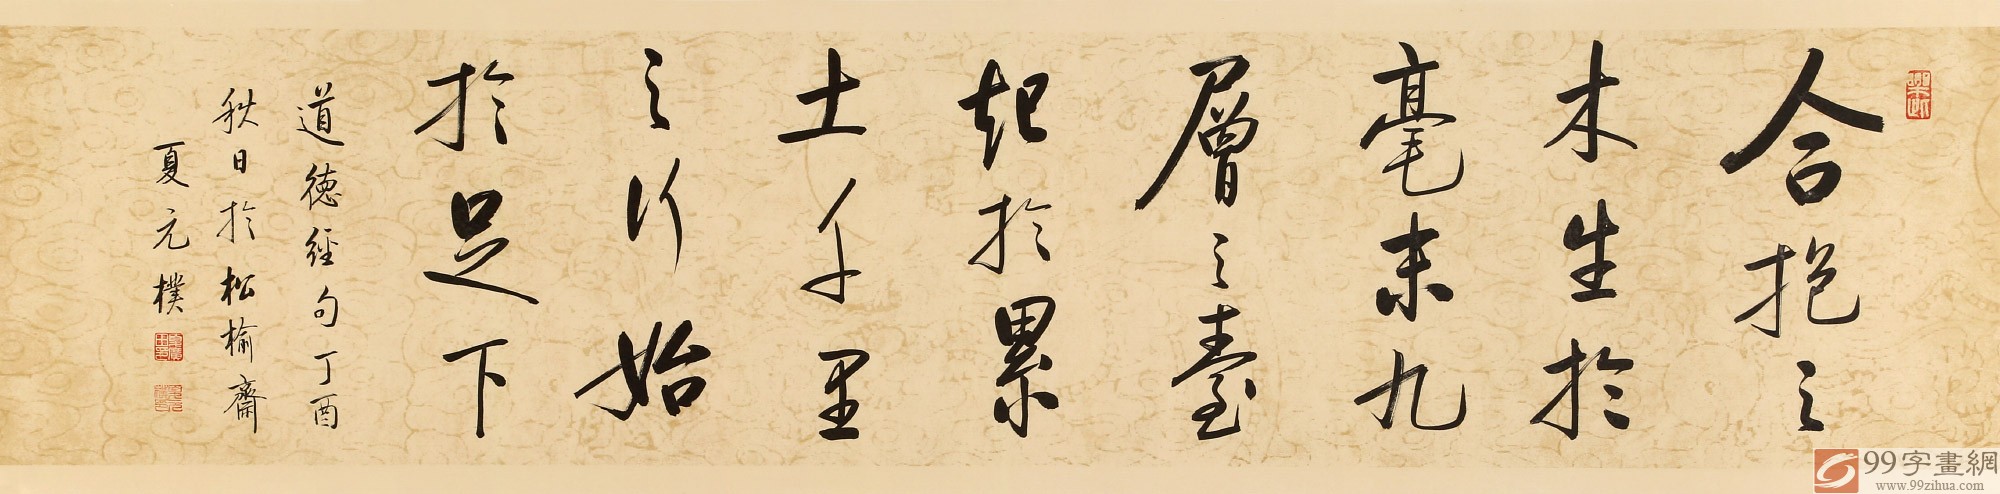 合抱之
木生於
毫末九
層之臺
起於累
土千里
之行始
於足下
道德經句丁酉
秋日於松榆齋
夏元樸
99字畫網
www.99zihua.com